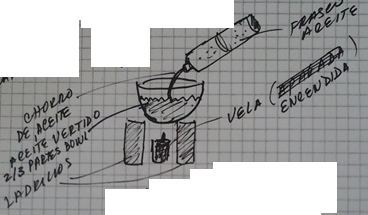 FRASCO
ACEITE
CHORRO
DE ACEITE
ACEITE VERTIDO
2/3 PARTES BOWL
LADRILLOS
VELA (
ENCENDIDA)